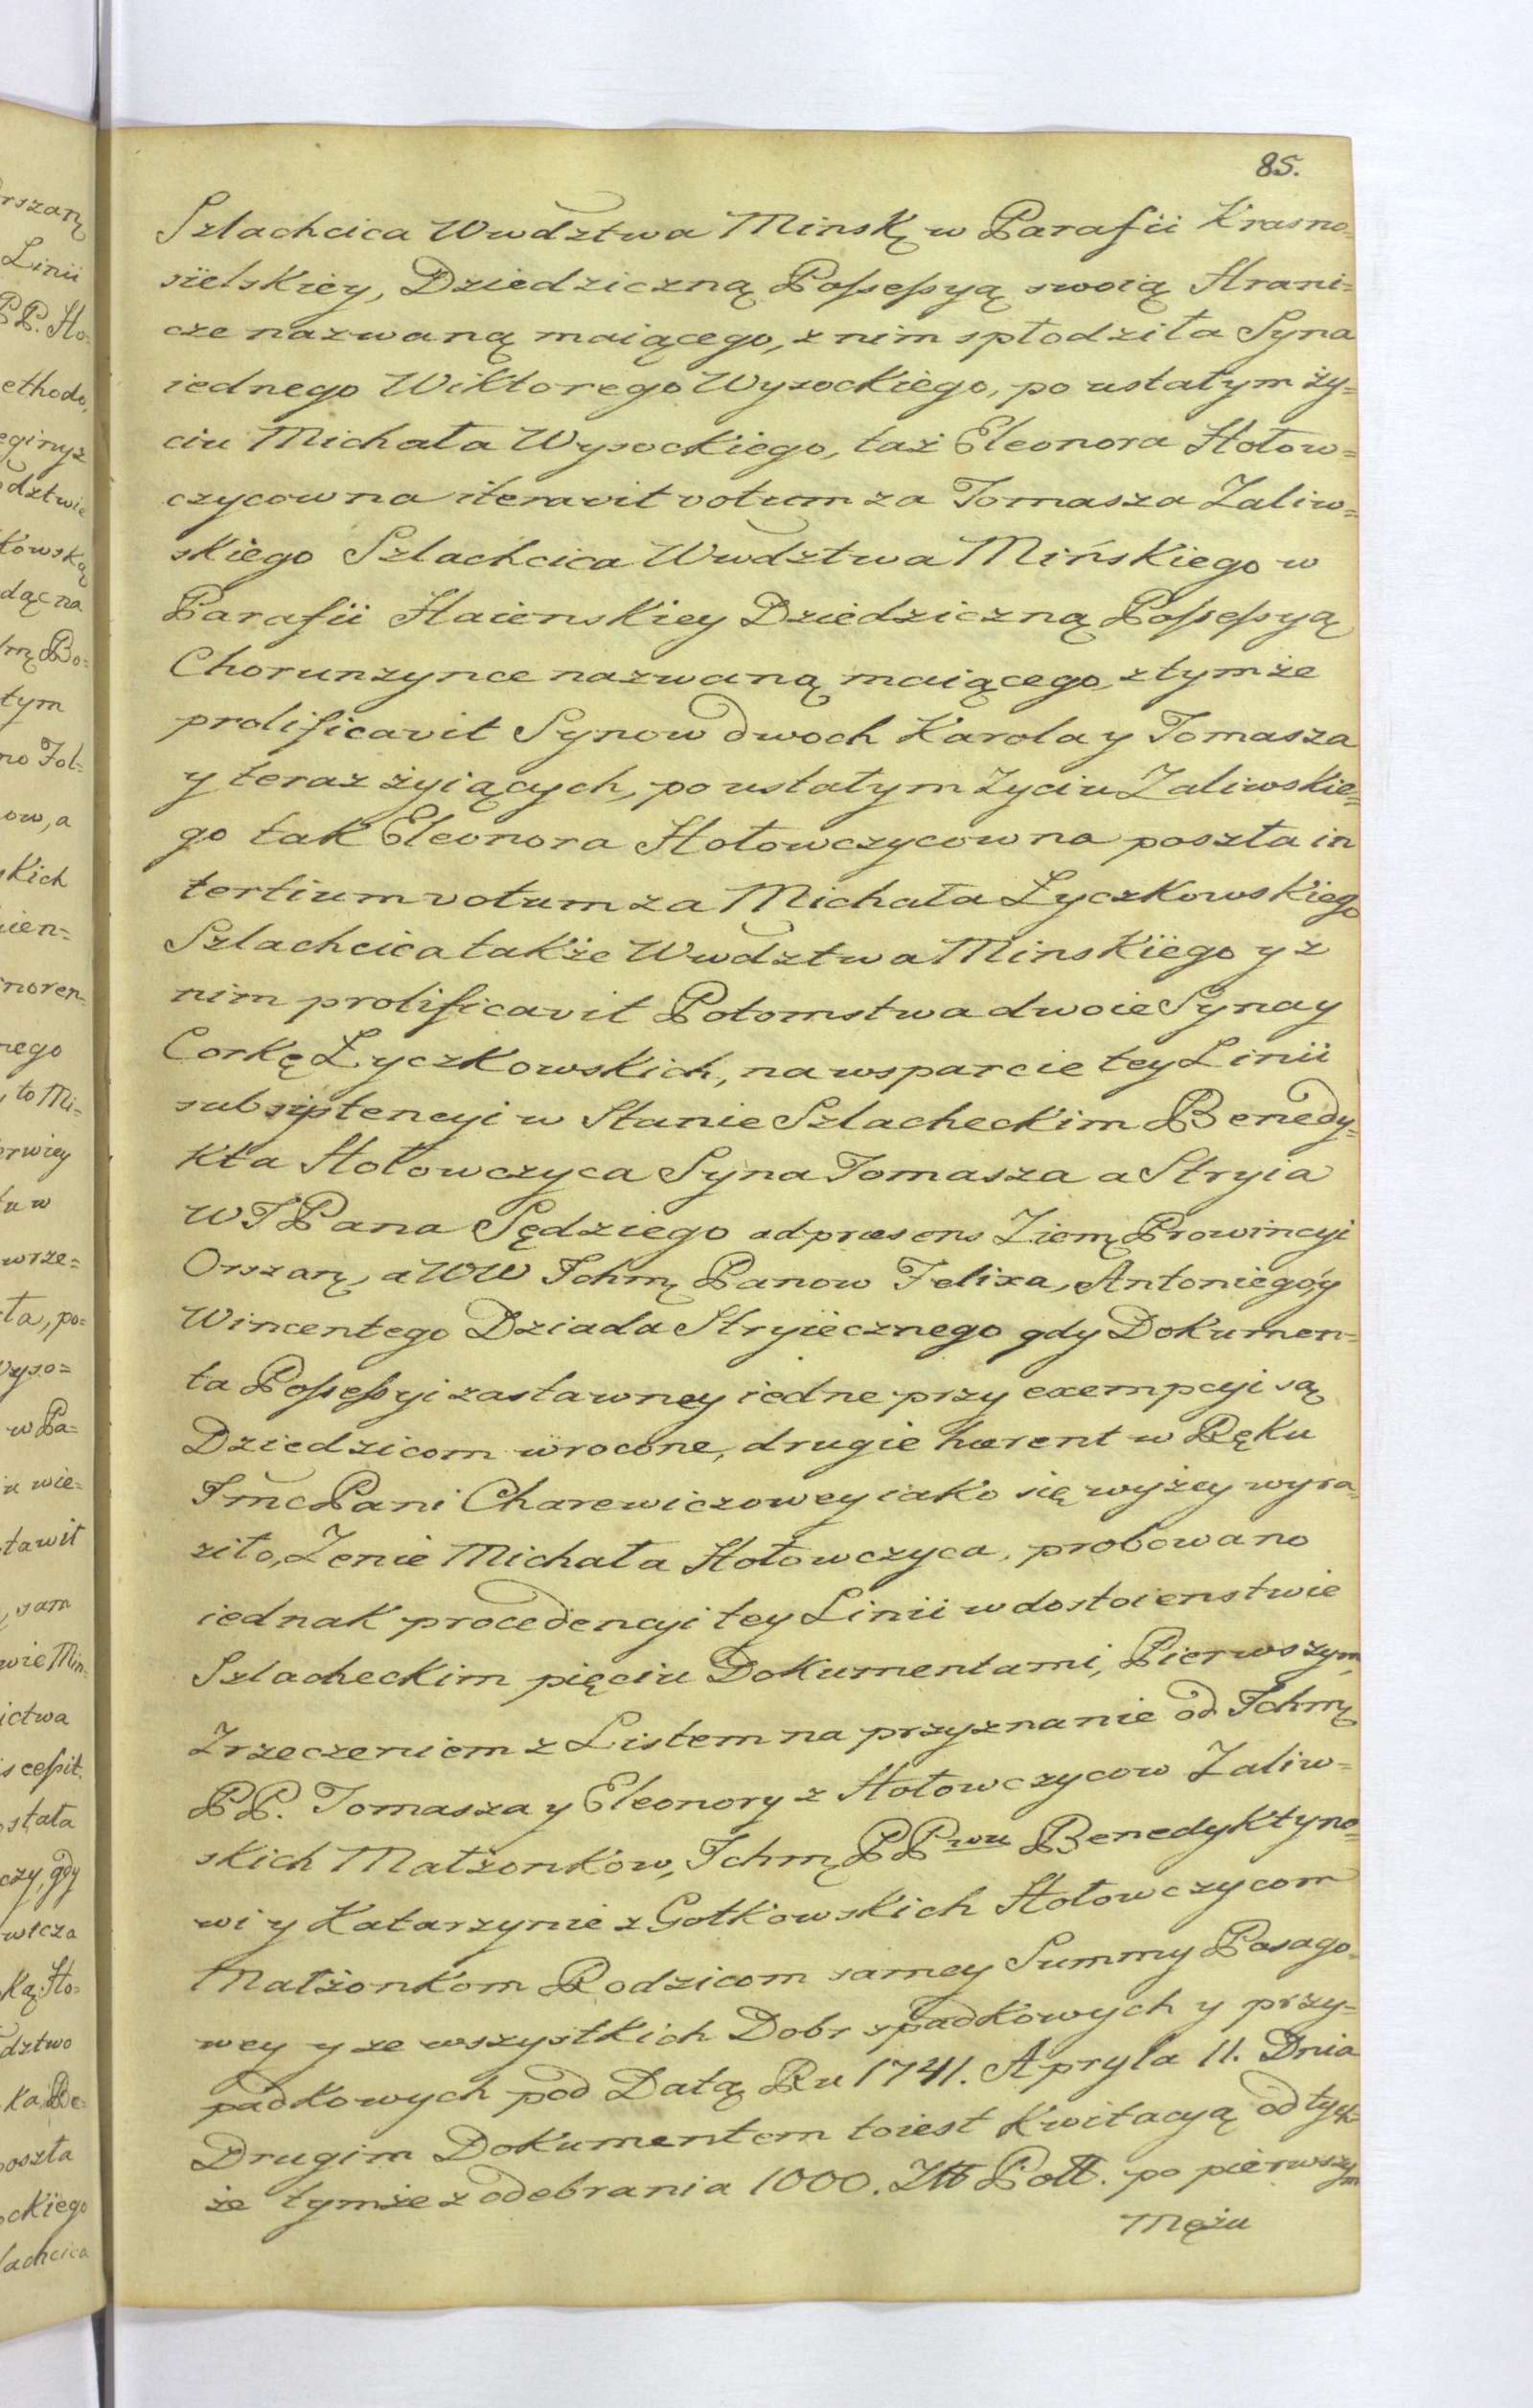 85.
Szlachcica Wwdztwa Minsk: w Parafii Krasno=
sielskiey, Dziedziczną Possessyą swoią Hrani=
cze nazwaną maiącego, z nim spłodziła Syna
iednego Wiktorego Wysockiego, po ustałym ży=
ciu Michała Wysockiego, taż Eleonora Hołow=
czycowna iteravit votum za Tomasza Zaliw=
skiego Szlachcica Wwdztwa Mińskiego w
Parafii Haienskiey Dziedziczną Possessyą
Chorunzynce nazwaną maiącego, z tymże
prolificavit Synow dwoch Karola y Tomasza
y teraz żyiących, po ustałym życiu Zaliwskie=
go tak Eleonora Hołowczycowna poszła in
tertium votum za Michała Łyczkowskiego
Szlachcica także Wwdztwa Minskiego y z
nim prolificavit Potomstwa dwoie Syna y
Corkę Łyczkowskich, na wsparcie tey Linii
subsistencyi w Stanie Szlacheckim Benedy=
kta Hołowczyca Syna Tomasza a Stryia
WJPana Sędziego ad præsens Ziem: Prowincyi
Orszań:, a WW Ichm: Panow Felixa, Antoniego, y
Wincentego Dziada Stryiecznego gdy Dokumen=
ta Possessyi zastawney iedne przy exempcyi są
Dziedzicom wrocone, drugie hærent w Ręku
Jmc Pani Charewiczowey iako się wyżey wyra=
ziło, Żenie Michała Hołowczyca, probowano
iednak procedencyi tey Linii w dostoienstwie
Szlacheckim pięciu Dokumentami, Pierwszym,
Zrzeczeniem z Listem na przyznanie od Ichm:
PP. Tomasza y Eleonory z Hołowczycow Zaliw=
skich Małżonkow, Ichm: PPwu Benedyktyno=
wi y Katarzynie z Gotkowskich Hołowczycom
Małżonkom Rodzicom samey Summy Posago=
wey y ze wszystkich Dobr spadkowych y przy=
padkowych pod Datą Ru 1741. Apryla 11. Dnia
Drugim Dokumentem toiest Kwitacyą od tych=
że tymże z odebrania 1000. Złł Poll. po pierwszym
Mężu
rszań:
Linii
PP. Ho=
ethodo,
dztwie
kowską
dąc na
Bo=
tym
no Fol=
ow, a
skich
ien=
noren=
nego
, to Mi=
rwiey
tu w
wrze=
ta, po=
Wyso=
w Pa=
u wie=
tawił
, sam
wie Min:
ictwa
scessit.
stała
czy, gdy
wicza
ką Ho=
dztwo
poszła
ockiego
lachcica